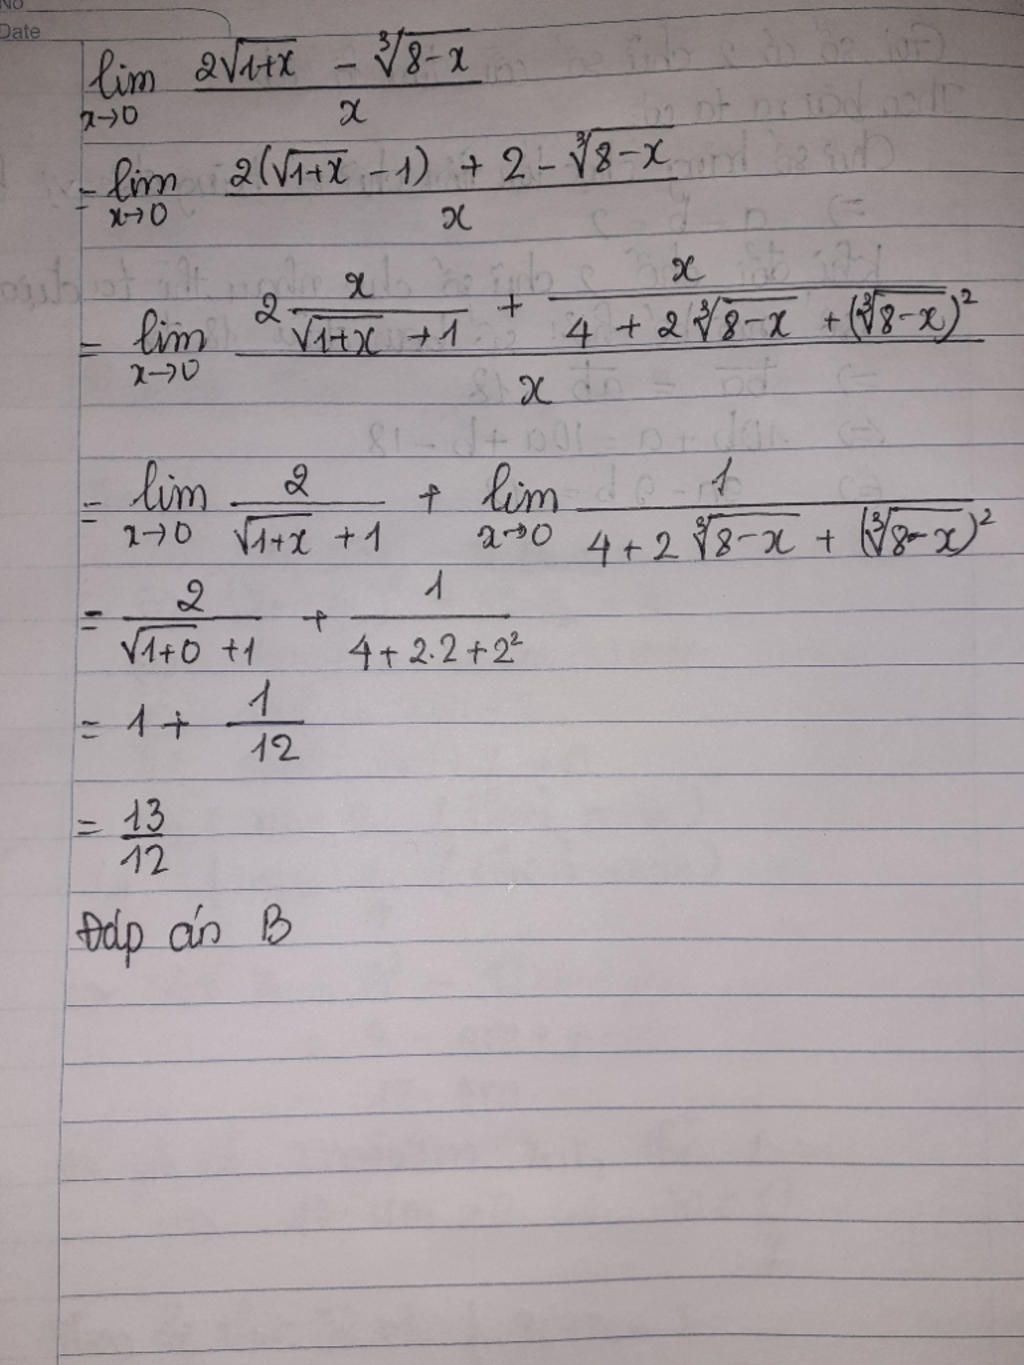 No
Date
lim x→0 (2√(1+x) - ∛(8-x)) / x
= lim x→0 (2(√(1+x) - 1) + 2 - ∛(8-x)) / x
= lim x→0 (2 x/(√(1+x) + 1) + x/(4 + 2∛(8-x) + (∛(8-x))²)) / x
= lim x→0 2/(√(1+x) + 1) + lim x→0 1/(4 + 2∛(8-x) + (∛(8-x))²)
= 2/(√(1+0) + 1) + 1/(4 + 2.2 + 2²)
= 1 + 1/12
= 13/12
Đáp án B